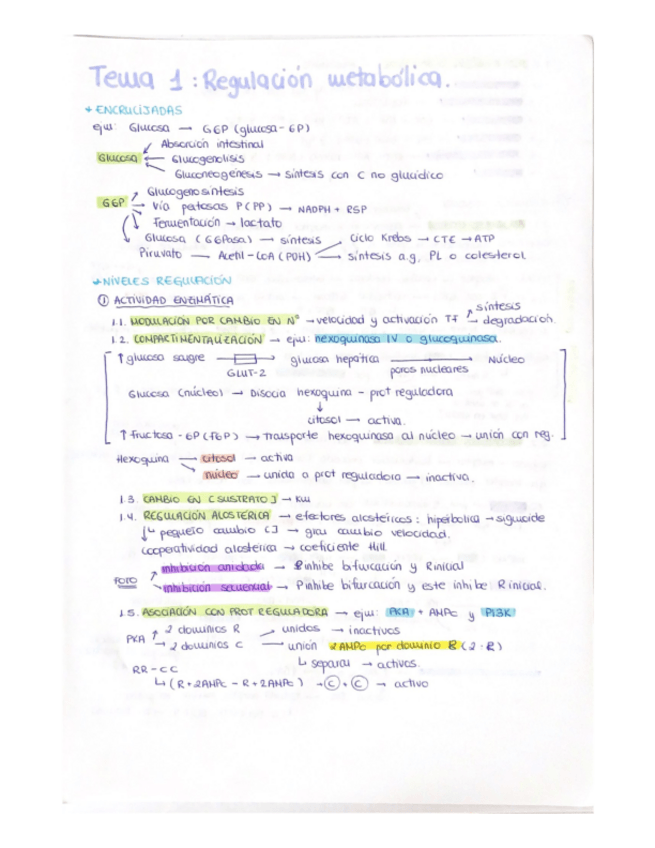 Tema 1: Regulación metabólica.
→ ENCRUCIJADAS
eju: Glucosa → G6P (glucosa-6P)
Absorción intestinal
Glucosa ← Glucogenolisis
Gluconeogenesis → síntesis con C no glucídico
Glucogenosíntesis
G6P → Vía pentosas P (PP) → NADPH + R5P
Fermentación → lactato
Glucosa (G6Pasa) → síntesis Ciclo Krebs → CTE → ATP
Piruvato → Acetil-CoA (PDH) → síntesis a.g, PL o colesterol
→ NIVELES REGULACIÓN
① ACTIVIDAD ENZIMÁTICA
síntesis
1.1. MODULACIÓN POR CAMBIO EN Nº → velocidad y activación TF → degradación.
1.2. COMPARTIMENTALIZACIÓN → eju: hexoquinasa IV o glucoquinasa.
↑ glucosa sangre → glucosa hepática → Núcleo
GLUT-2 poros nucleares
Glucosa (núcleo) → Disocia hexoquina - prot reguladora
↓
citosol → activa.
↑ fructosa-6P (F6P) → Transporte hexoquinasa al núcleo → unión con reg.
Hexoquina → citosol → activa
núcleo → unida a prot reguladora → inactiva.
1.3. CAMBIO EN [SUSTRATO] → KM
1.4. REGULACIÓN ALOSTÉRICA → efectores alostéricos: hiperbólica → sigmoide
↳ pequeño cambio [] → gran cambio velocidad.
cooperatividad alostérica → coeficiente Hill.
inhibición anidada → P inhibe bifurcación y R inicial
FOTO
inhibición secuencial → P inhibe bifurcación y este inhibe R inicial.
1.5. ASOCIACIÓN CON PROT REGULADORA → eju: PKA + AMPc y PI3K
PKA ↗ 2 dominios R unidos → inactivos
→ 2 dominios C → unión 2AMPc por dominio R (2·R)
↳ separan → activos.
RR-CC
↳ (R+2AMPc - R+2AMPc) → Ⓒ + Ⓒ → activo